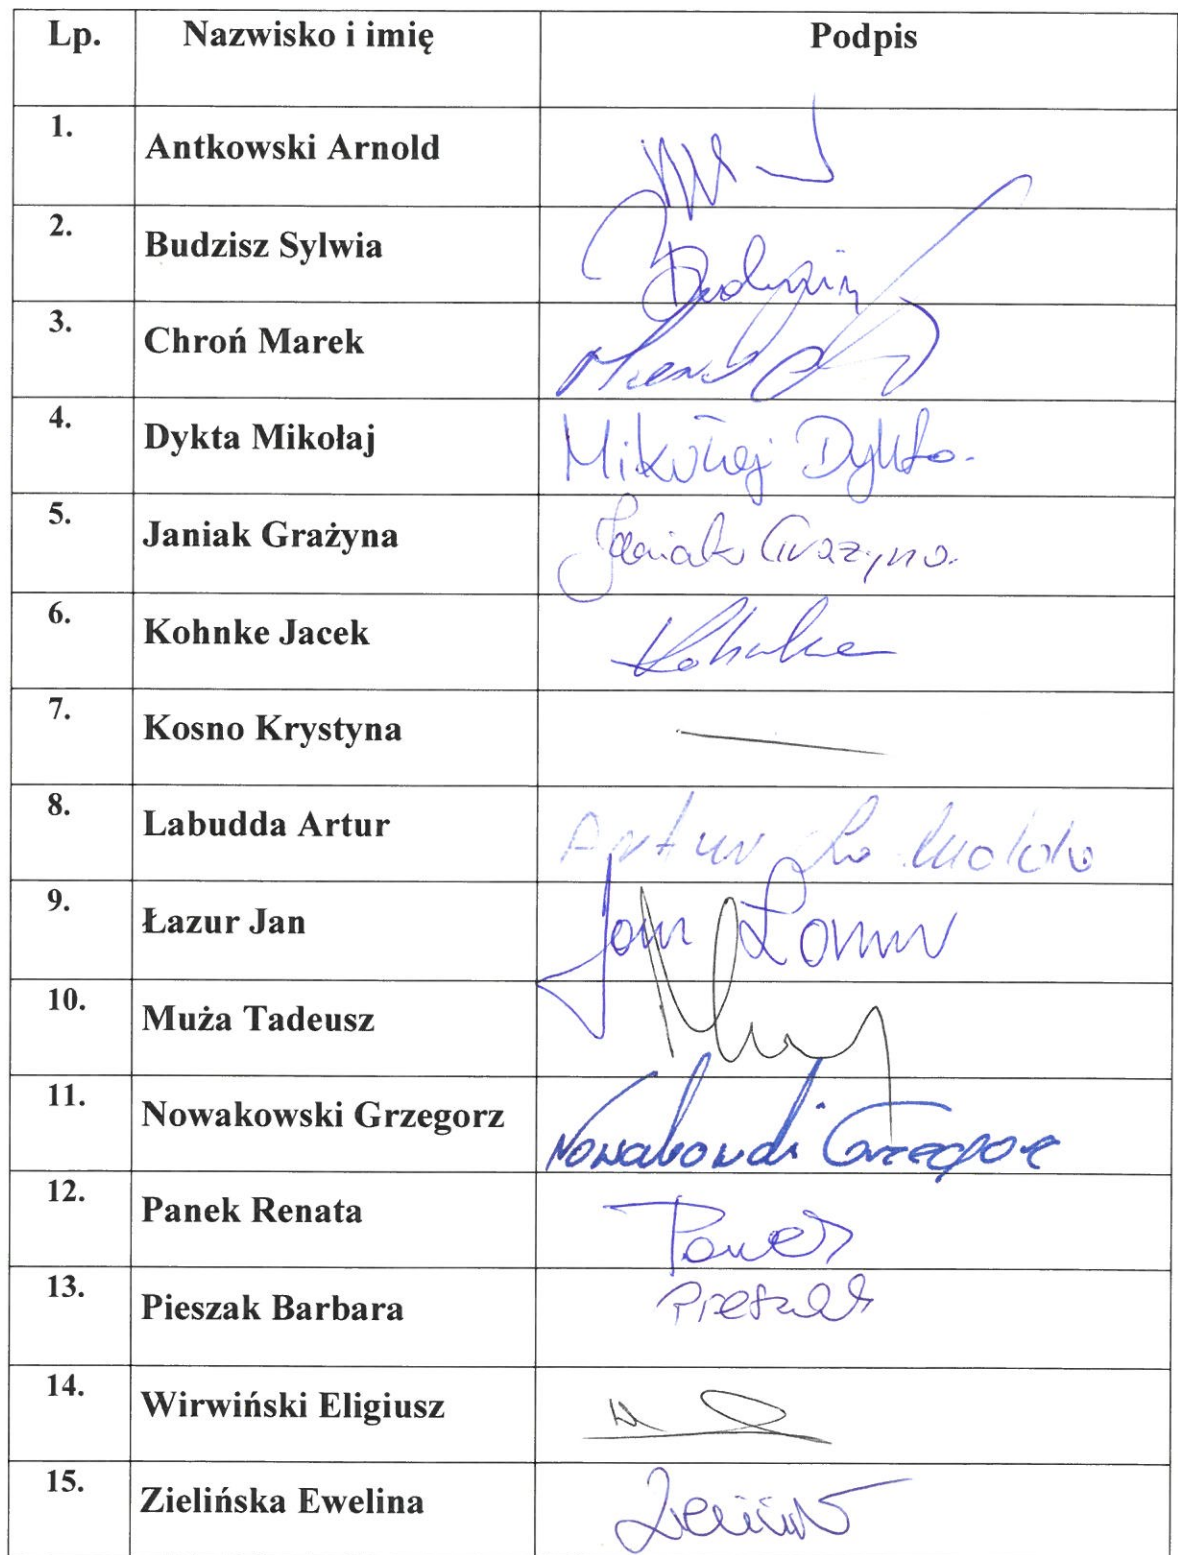 Lp. Nazwisko i imię Podpis
1. Antkowski Arnold
2. Budzisz Sylwia
3. Chroń Marek
4. Dykta Mikołaj Mikołaj Dykta
5. Janiak Grażyna Janiak Grażyna
6. Kohnke Jacek Kohnke
7. Kosno Krystyna
8. Labudda Artur Artur Labudda
9. Łazur Jan Jan Łazur
10. Muża Tadeusz
11. Nowakowski Grzegorz Nowakowski Grzegorz
12. Panek Renata Panek
13. Pieszak Barbara Pieszak
14. Wirwiński Eligiusz
15. Zielińska Ewelina